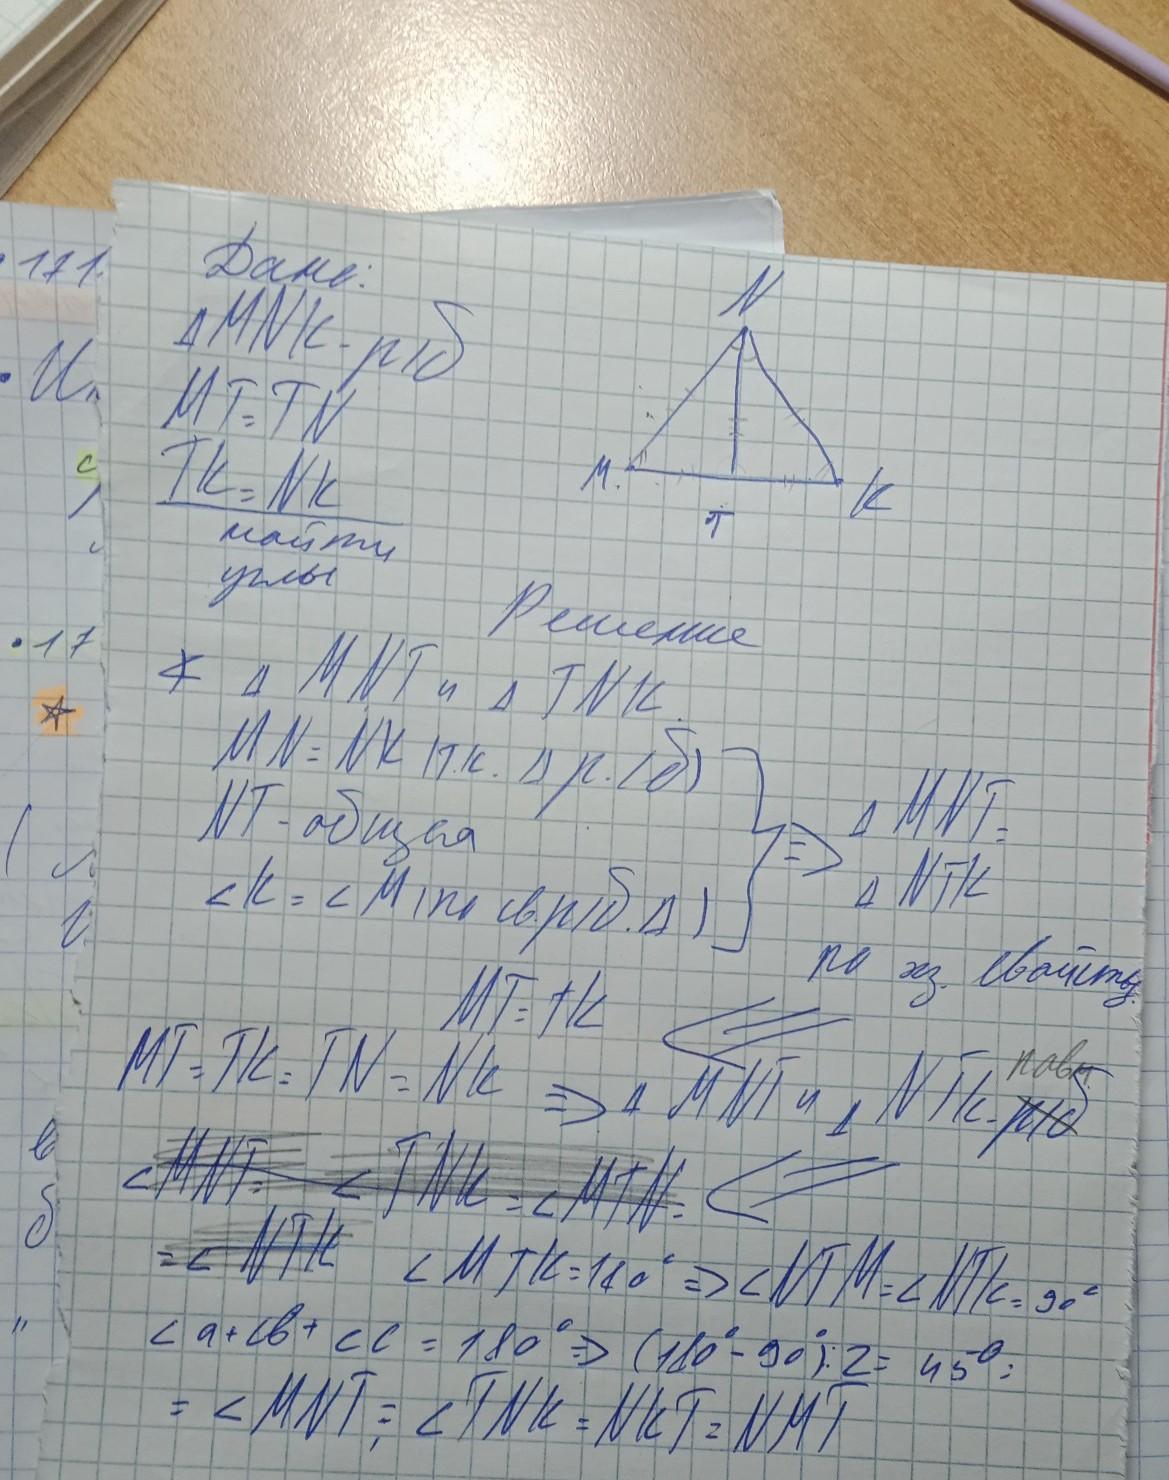 171.
Дано:
△MNK - р/б
MT = TN
TK = NK
найти
углы
N
M
T
K
Решение
△ MNT и △ TNK.
MN = NK (т.к. △ р./б)
NT - общая
∠K = ∠M (по св. р/б. △)
⇒ △ MNT =
△ NTK
MT = TK
MT = TK = TN = NK ⇒ △ MNT и △ NTK - р/б
равн
∠MNT = ∠TNK = ∠MTN =
= ∠NTK ∠MTK = 180° ⇒ ∠NTM = ∠NTK = 90°
∠a + ∠b + ∠c = 180° ⇒ (180° - 90°) : 2 = 45° =
= ∠MNT = ∠TNK = NKT = NMT